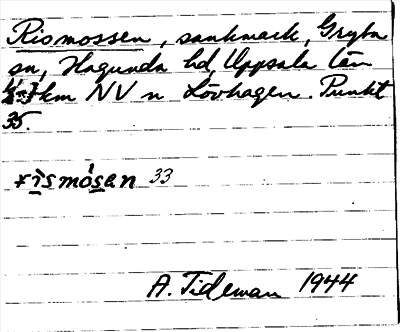 Rismossen, sankmark, Gryta
sn, Hagunda hd, Uppsala län
km NV n Lövhagen. Punkt
35.
rismósan 33
A. Tideman 1944